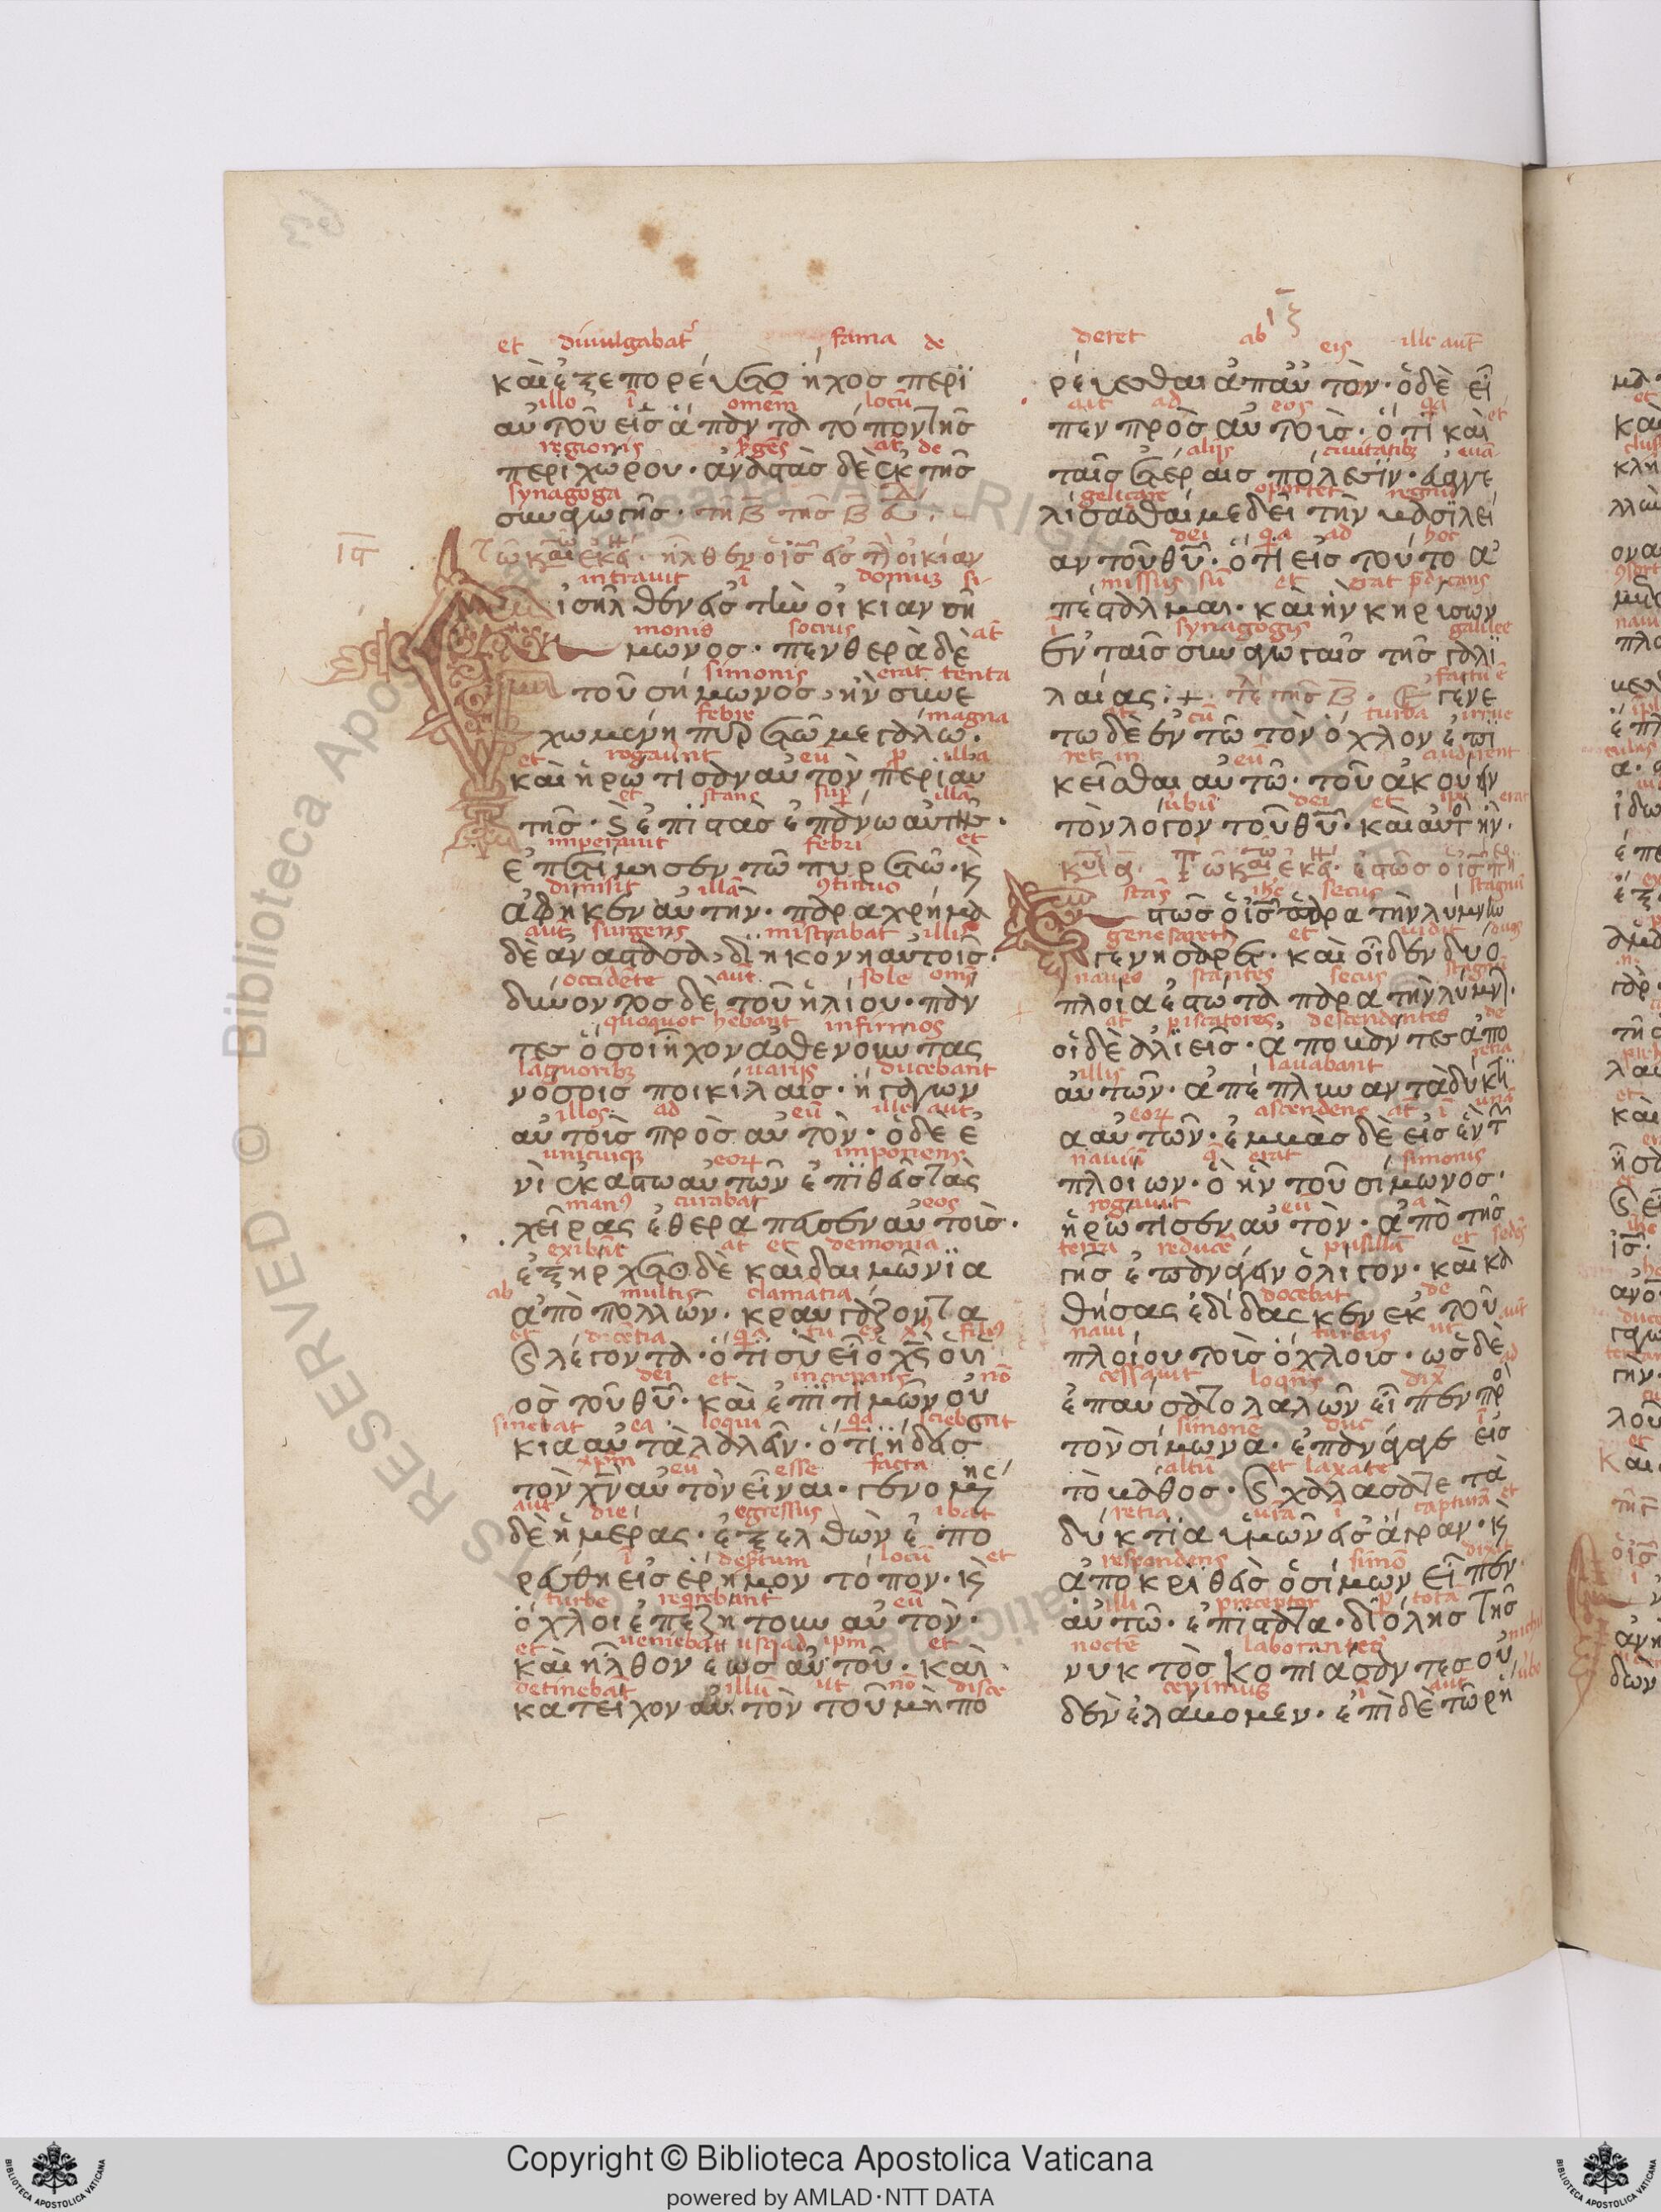 et divulgabat᷑ fama de
καὶ ἐξεπορεύετο ἠχοσ περϊ
illo ī omēm locū
αὐτοῦ εἰσ ἅπαντα τόπον τῆσ
regionis at de
περιχώρου· ἀναστὰσ δὲ ἐκ τῆσ
synagoga
συναγωγῆσ·
ις
intravit ī domum si-
ἰσῆλθεν εἰσ τὴν οἰκίαν σή
monis socrus at̄
μωνοσ· πενθερὰ δὲ
simonis erat tenta
τοῦ σήμωνοσ, ἦν συνε
febre magna
χωμένη πυρετῶ μεγάλω·
et rogaūnt eū ꝓ illa
καὶ ἠρώτισαν αὐτὸν περὶ αυ
et stans sup̄ illā
τῆσ· ϗ ἐπιστὰσ ἐπάνω αὐτῆσ·
imperavit febri et
ἐπετίμησεν τῶ πυρετῶ· ϗ
dimisit illā ꝯtinuo
ἀφῆκεν αὐτὴν· παραχρήμα
aut surgens mīstrabat illis
δὲ ἀναστάσα, διηκόνη αὐτοισ·
occidēte aut̄ sole om̄s
δύνοντοσ δὲ τοῦ ἡλίου· παν
quoquot hēbant infirmos
τεσ ὅσοι ἦχον ἀσθενουντας
lāguoribꝫ variis ducebant
νόσοισ ποικίλαισ· ἤγαγων
illos ad eū ille aut
αὐτοὶσ πρὸσ αὐτὸν· ὁ δὲ ἑ
unicuiqꝫ eoꝝ imponens
νὶ ἑκάστω αὐτῶν ἐπϊθεὶσ τὰς
man⁹ curabat eos
χεῖρας ἐθεράπευσεν αὐτοισ·
exibāt at et demonia
ἐξήρχετο δὲ καὶ δαιμώνϊα
ab multis clamātia
ἀπὸ πολλῶν· κραυγάζοντα
et dicētia q̄a tu es xp̄s fili⁹
ϗ λέγοντα· ὅτι σὺ εἶ ὁ χ̄σ ὁ υἱ
dei et increpans nō
ὸσ τοῦ θῦ· καὶ ἐπϊτιμῶν οὐ
sinebat ea loqui q̄a sciebant
κ ια αὐτὰ λαλεῖν· ὅτϊ ἤδεισ
xp̄m eū esse facta
τὸν χν̄ αὐτὸν εἶναι· γενομης
aut die egressus ibat
δὲ ἡμέρας· ἐξελθὼν ἐπο
ī desertum locū et
ρεύθη εἰσ ἐρημον τόπον· ϗ
turbe reqrebant eū
ὄχλοι ἐπεζήτουν αὐτὸν·
et veniebāt usqad ipm et
καὶ ἦλθον ἕωσ αὐτοῦ· καὶ
detinebāt illū ut nō disce
κατεῖχον αὐτὸν τοῦ μὴ πο
ιζ
deret ab eis ille aut̄
ρεύεσθαι ἀπ αὐτὸν· ὁ δὲ εἶ
ait ad eos q̄a et
πεν πρὸσ αὐτοὶσ· ὅτϊ καὶ
aliis civitatibꝫ evā-
ταῖσ ἑτέραισ πόλεσϊν· εὐαγγε
gelizare oportet regnū
λίσασθαί με δεῖ τὴν βασϊλεί
dei q̄a ad hoc
αν τοῦ θῦ· ὅτι εἰσ τούτο ἀ
missus sū et erat p̄dicans
πέσταλμαι· καὶ ἦν κηρισων
ī synagogis galilee
ἐν ταῖσ συναγωγαῖσ τῆσ γαλι
factū ē
λαίας: + ἐγένε
at cū turba irrue
τω δὲ ἐν τῶ τὸν ὄχλον ἐπϊ
ret in eū audirent
κεῖσθαι αὐτῶ· τοῦ ἀκούειν
ūbū dei et ip̄e erat
τὸν λόγον τοῦ θῦ· καὶ αὐτὸσ ἦν·
stās ihc secus stagnū
ἑστῶσ ὁ ἰσ παρα τὴν λύμνην
genesareth et vidit duas
γενησαρετ· καὶ οἶδεν δυο
naves stantes secus stagnū
πλοία ἑστώτα παρα τὴν λύμνην·
at piscatores descendentes de
οἱ δὲ ἁλϊεισ· ἀποβάντεσ ἀπο
illis lavabant retia
αὐτῶν· ἀπέπλυναν τὰ δύκτϊ
eoꝝ ascendens at̄ ī unā
α αὐτῶν· ἐμβὰσ δὲ εἰσ ἓν τῶν
naviū q̄ erat simonis
πλοίων· ὃ ἦν τοῦ σίμωνοσ·
rogavit eū a
ἠρώτισεν αὐτὸν· ἀπὸ τῆσ
terra reducē pusillū et sedēs
γῆσ ἐπαναγαγεῖν ὀλίγον· καὶ κα
docebat de
θήσας ἐδίδασκεν ἐκ τοῦ
navi turbas ut aut̄
πλοίου τοὶσ ὄχλοισ· ωσ δὲ
cessavit loqns dix̄ ad
ἐπαύσατο λαλῶν εἶπεν πρὸ
simonē duc ī
τὸν σίμωνα· ἐπανάγαγε εἰσ
altū et laxate
τὸ βάθοσ· ϗ χαλάσατε τὰ
retia vr̄a ī capturā et
δύκτϊα ὑμῶν εἰσ ἄγραν· ϗ
respondens simō dixit
ἀποκριθεὶσ ὁ σίμων εἶπεν
illi preceptor ꝑ totā
αὐτῶ· ἐπιστάτα· δϊ ὅλησ τῆσ
noctē laborantes nichil
νυκτὸσ κοπϊάσαντεσ οὐ
cepimus ī aut̄ ūbo
δὲν ἐλάβομεν· ἐπὶ δὲ τῶ ρή
© Biblioteca Apostolica Vaticana ALL RIGHTS RESERVED
Copyright © Biblioteca Apostolica Vaticana
powered by AMLAD·NTT DATA
BIBLIOTECA APOSTOLICA VATICANA
BIBLIOTECA APOSTOLICA VATICANA